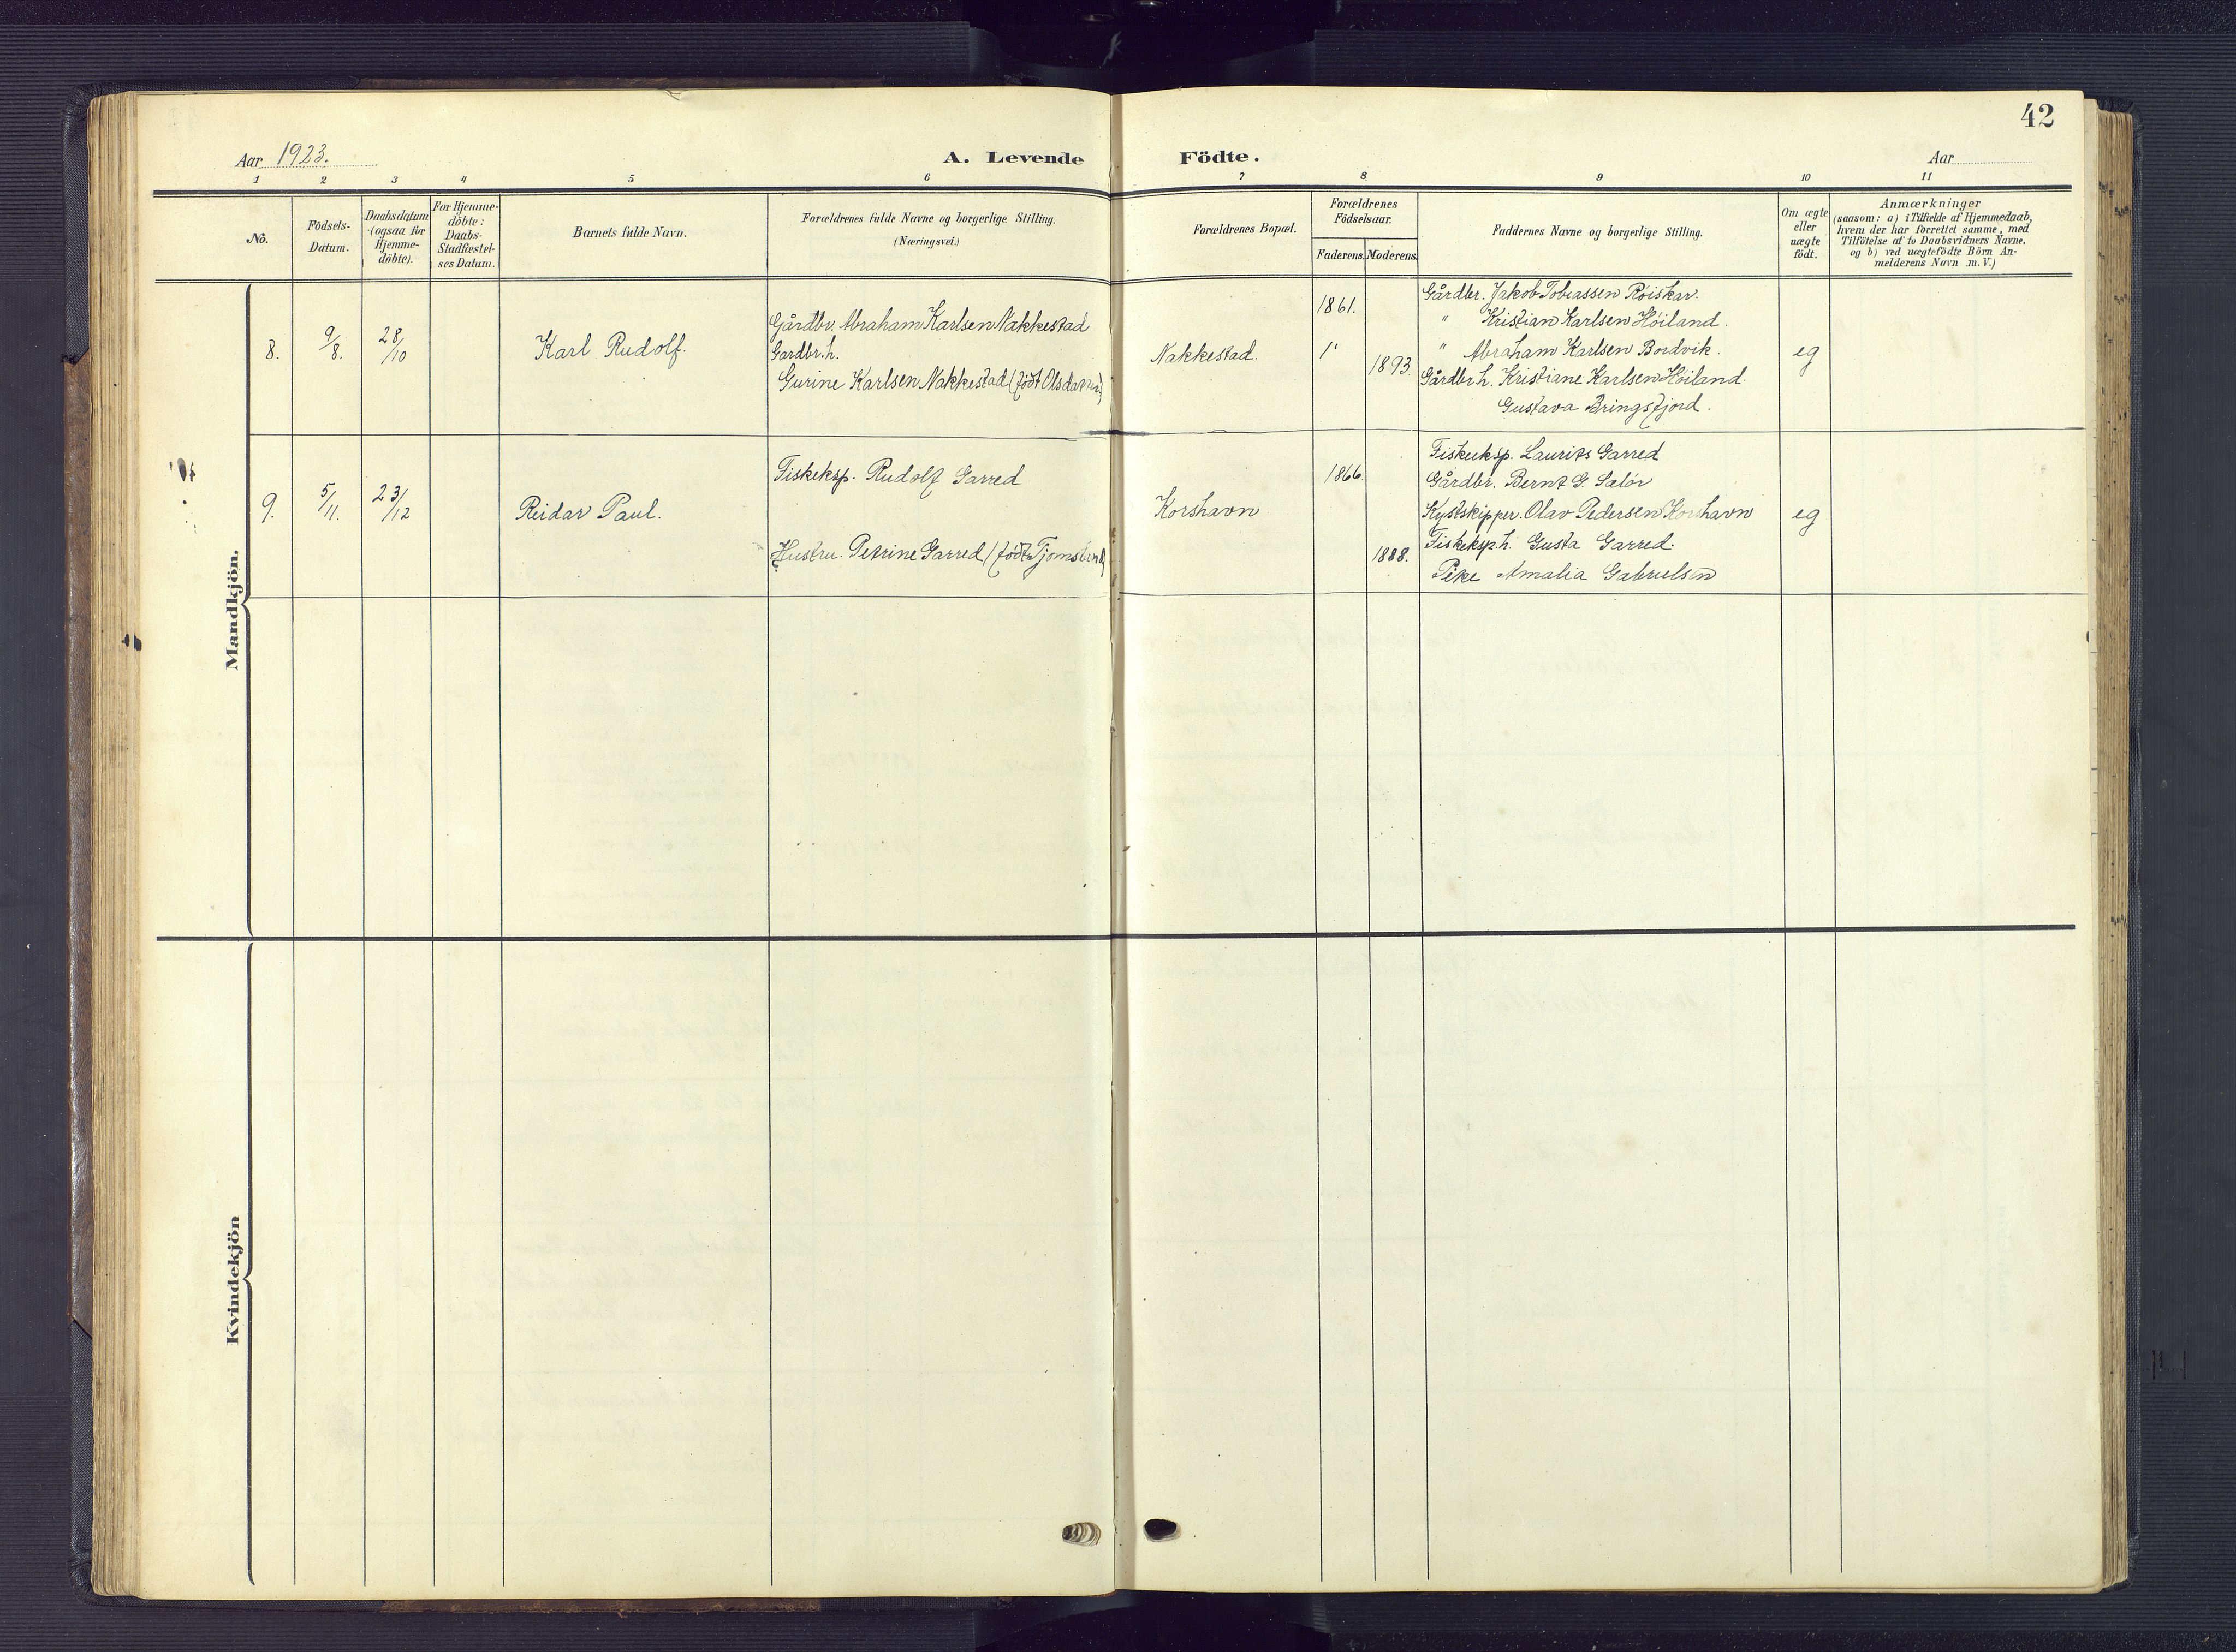 42
Aar 1923.
A. Levende Födte.
Aar
1 2 3 4 5 6 7 8 9 10 11
No.
Födsels-
Datum.
Daabsdatum
(ogsaa for
Hjemme-
döbte).
For Hjemme-
döbte:
Daabs-
Stadfæstel-
ses Datum.
Barnets fulde Navn.
Forældrenes fulde Navne og borgerlige Stilling.
(Næringsvei.)
Forældrenes Bopæl.
Forældrenes
Födselsaar.
Faderens. Moderens.
Faddernes Navne og borgerlige Stilling.
Om ægte
eller
uægte
födt.
Anmærkninger
(saasom: a) i Tilfælde af Hjemmedaab,
hvem der har forrettet samme, med
Tilföielse af to Daabsvidners Navne.
og b) ved uægtefödte Börn An-
melderens Navn m. V.)
Mandkjön.
8.
9/8.
28/10
Karl Rudolf.
Gårdbr. Abraham Karlsen Nakkestad
Gardbr.h.
Gurine Karlsen Nakkestad (født
Nakkestad.
1861.
1893.
Gårdbr. Jakob Tobiassen Röiskar.
" Kristian Karlsen Höiland.
" Abraham Karlsen Bordvik.
Gårdbr.h. Kristiane Karlsen Höiland.
Gustava Bringsfjord.
eg
9.
5/11.
23/12
Reidar Paul.
Fiskeksp. Rudolf Garred
Hustru. Petrine Garred (født Tjomsland)
Korshavn
1866.
1888.
Fiskeeksp. Laurits Garred
Gårdbr. Bernt G. Salör
Kystskipper. Olav Pedersen Korshavn
Fiskeksp.h. Gusta Garred.
Pike Amalia Gabrielsen
eg
Kvindekjön